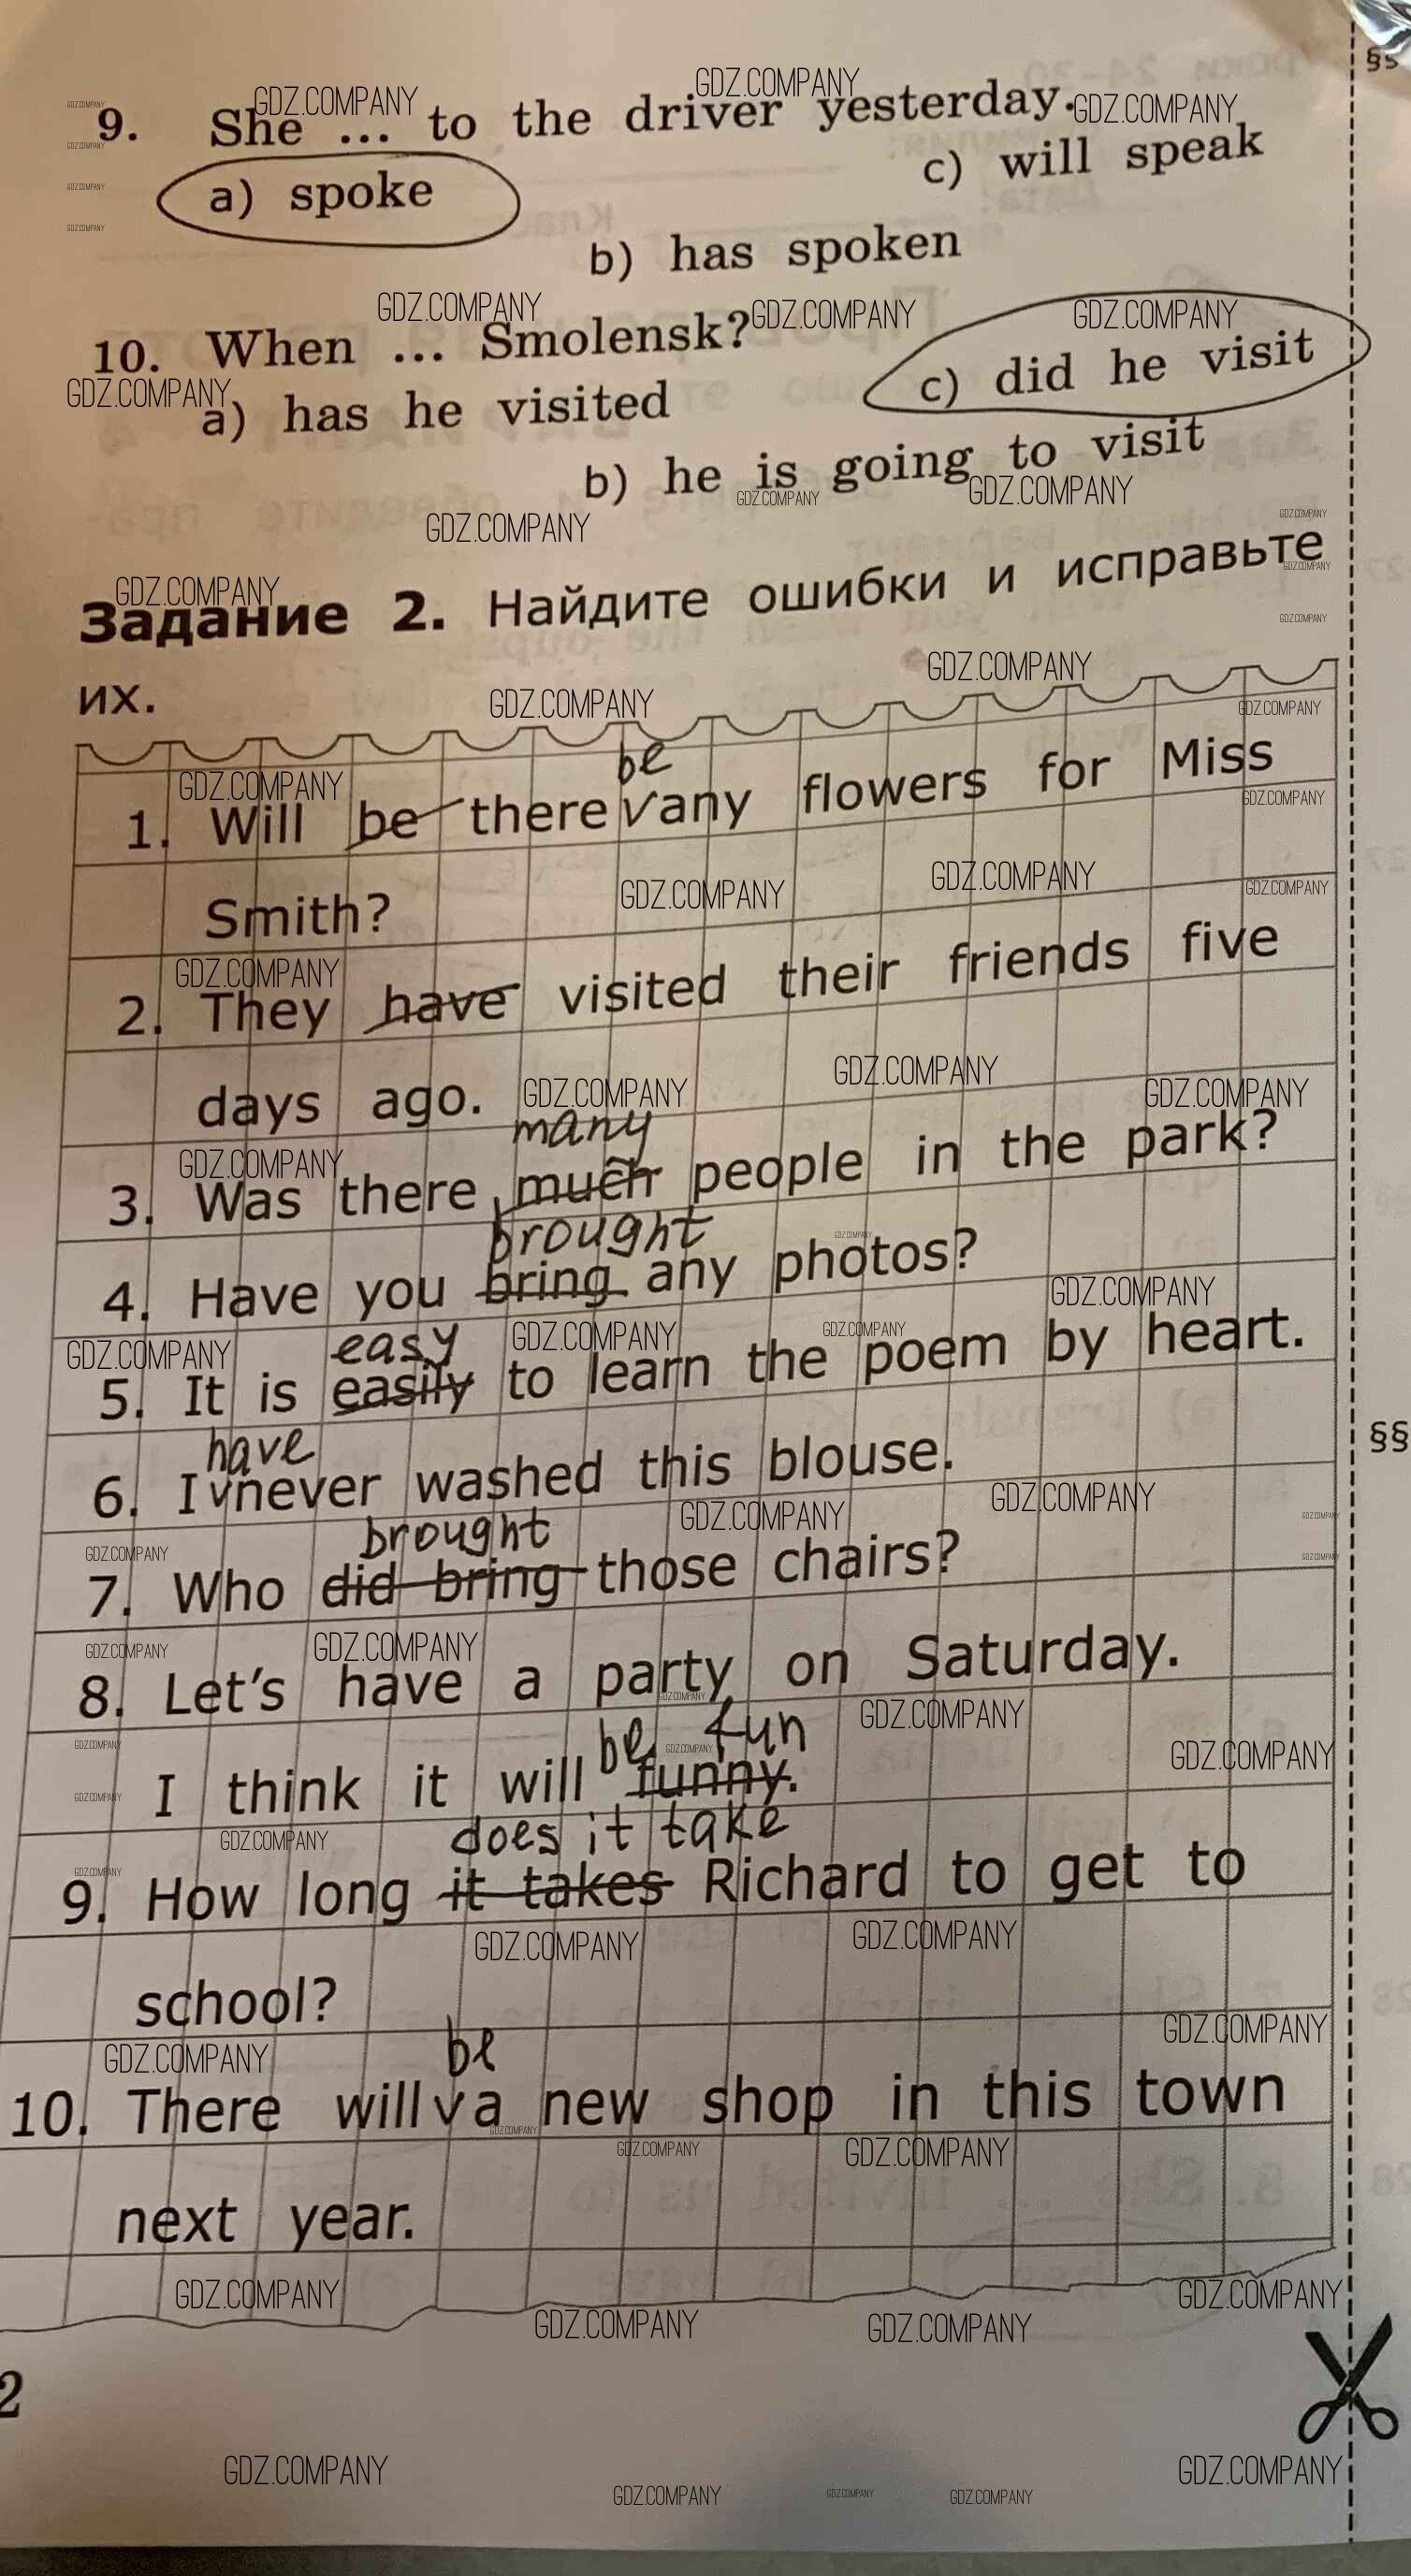 9. She ... to the driver yesterday.
a) spoke
c) will speak
b) has spoken
10. When ... Smolensk?
a) has he visited
c) did he visit
b) he is going to visit
Задание 2. Найдите ошибки и исправьте
их.
be
1. Will be there V any flowers for Miss
Smith?
2. They have visited their friends five
days ago.
many
3. Was there much people in the park?
brought
4. Have you bring any photos?
easy
5. It is easily to learn the poem by heart.
have
6. I V never washed this blouse.
brought
7. Who did bring those chairs?
8. Let's have a party on Saturday.
be fun
I think it will funny.
does it take
9. How long it takes Richard to get to
school?
be
10. There will V a new shop in this town
next year.
2
GDZ.COMPANY
§§